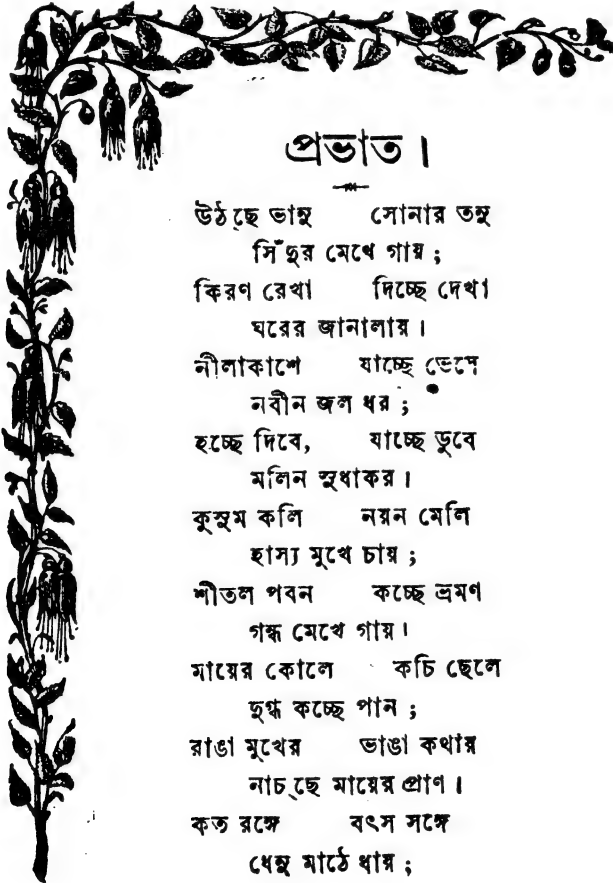 প্রভাত।
উঠ্ছে ভানু সোনার তনু
সিঁদুর মেখে গায়;
কিরণ রেখা দিচ্ছে দেখা
ঘরের জানালায়।
নীলাকাশে যাচ্ছে ভেসে
নবীন জল ধর;
হচ্ছে দিবে, যাচ্ছে ডুবে
মলিন সুধাকর।
কুসুম কলি নয়ন মেলি
হাস্য মুখে চায়;
শীতল পবন কচ্ছে ভ্রমণ
গন্ধ মেখে গায়।
মায়ের কোলে কচি ছেলে
দুগ্ধ কচ্ছে পান;
রাঙা মুখের ভাঙা কথার
নাচ্ছে মায়ের প্রাণ।
কত রঙ্গে বৎস সঙ্গে
ধেনু মাঠে ধায়;